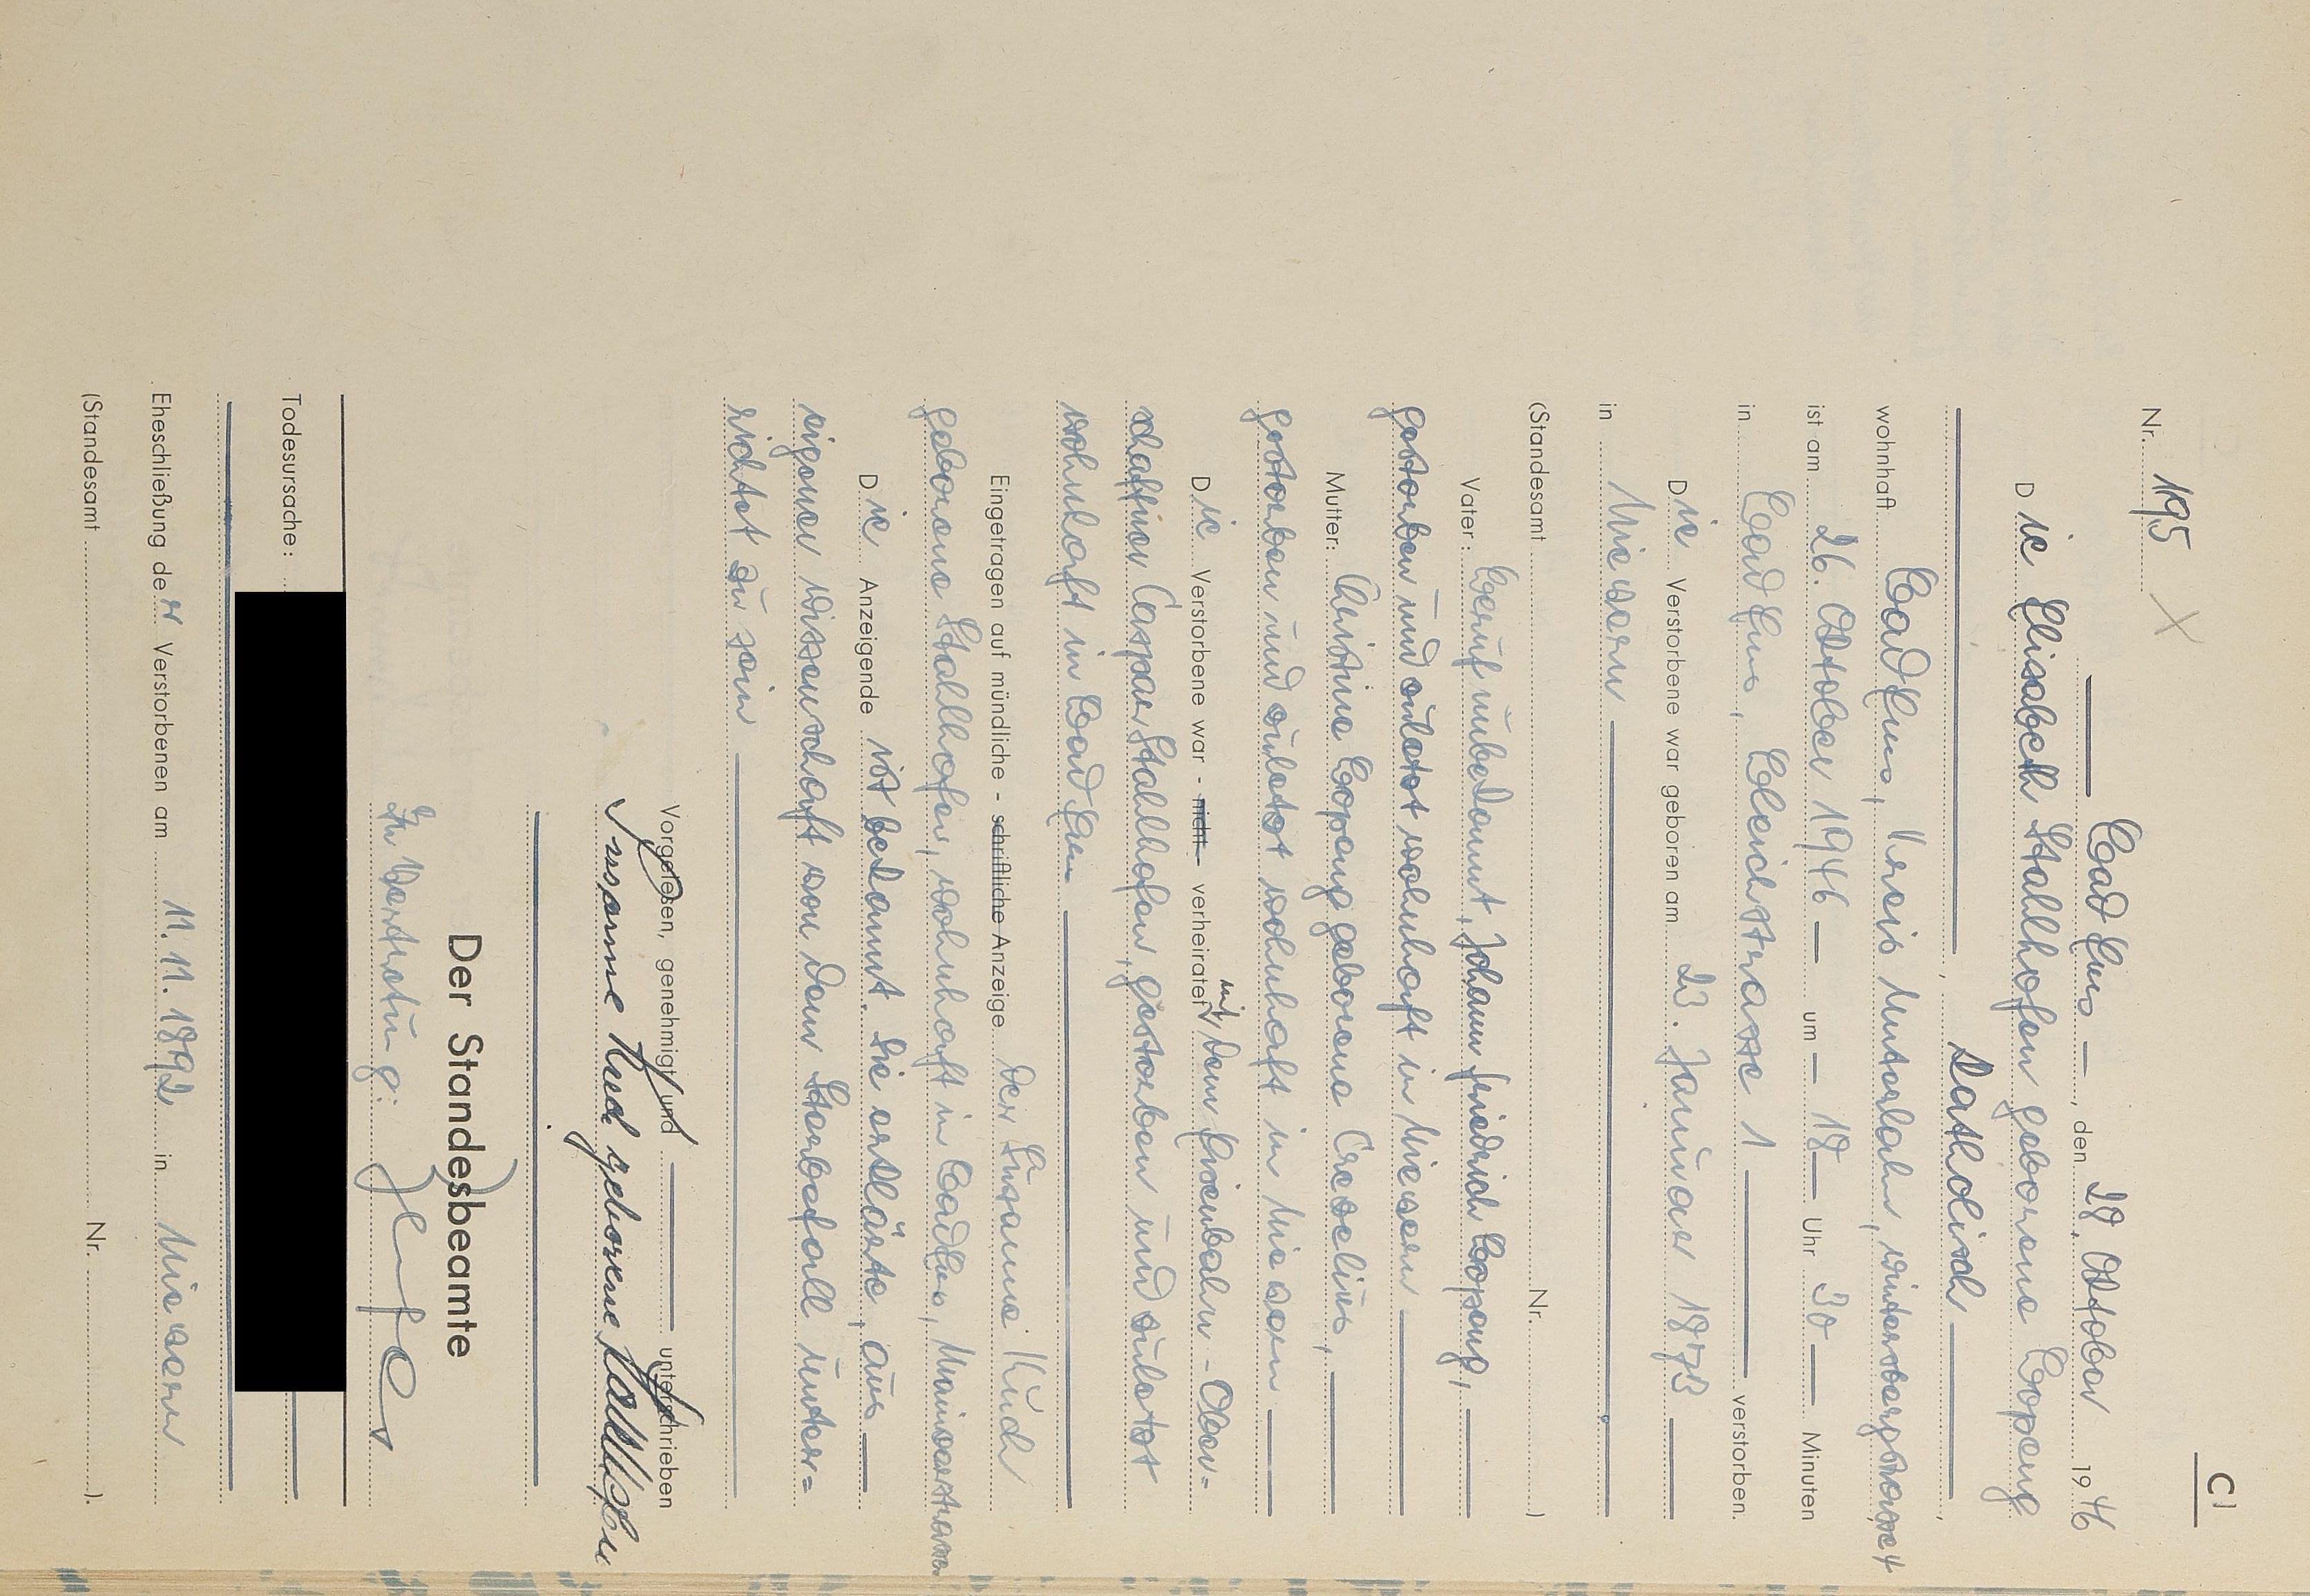 C1
Nr. 195
Bad Ems, den 28. Oktober 1946
Die Elisabeth Stahlhofen geborene Copeng
katholisch
wohnhaft Bad Ems, Kreis Unterlahn, Wintersbergstrasse 4
ist am 26. Oktober 1946 um 18 Uhr 30 Minuten
in Bad Ems, Bleichstrasse 1 verstorben.
Die Verstorbene war geboren am 23. Januar 1873
in Nievern
(Standesamt Nr. )
Vater: Beruf unbekannt, Johann Friedrich Copeng,
gestorben und zuletzt wohnhaft in Nievern
Mutter: Christine Copeng geborene
gestorben und zuletzt wohnhaft in Nievern
Die Verstorbene war - nicht - verheiratet mit dem Eisenbahn-Ober-
schaffner Caspar Stahlhofen, gestorben und zuletzt
wohnhaft in Bad Ems
Eingetragen auf mündliche - schriftliche Anzeige der Susanne
geborene Stahlhofen, wohnhaft in Bad Ems,
Die Anzeigende ist bekannt. Sie erklärte, aus
eigener Wissenschaft von dem Sterbefall unter=
richtet zu sein
Vorgelesen, genehmigt und unterschrieben
Susanne geborene Stahlhofen
Der Standesbeamte
In Vertretung:
Todesursache:
Eheschließung der Verstorbenen am 11. 11. 1892 in Nievern
(Standesamt Nr. ).